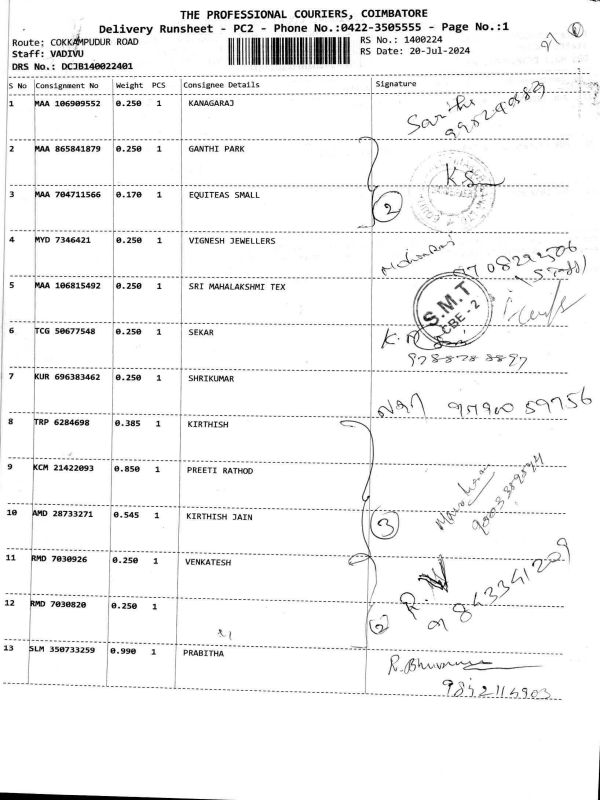 THE PROFESSIONAL COURIERS, COIMBATORE
Delivery Runsheet - PC2 - Phone No.:0422-3505555 - Page No.:1
Route: COKKAMPUDUR ROAD RS No.: 1400224
Staff: VADIVU RS Date: 20-Jul-2024
DRS No.: DCJB140022401
S No Consignment No Weight PCS Consignee Details Signature
1 MAA 106909552 0.250 1 KANAGARAJ
2 MAA 865841879 0.250 1 GANTHI PARK
KS
3 MAA 704711566 0.170 1 EQUITEAS SMALL 2
4 MYD 7346421 0.250 1 VIGNESH JEWELLERS
5 MAA 106815492 0.250 1 SRI MAHALAKSHMI TEX
S.M.T
CBE-2
6 TCG 50677548 0.250 1 SEKAR
9788788897
7 KUR 696383462 0.250 1 SHRIKUMAR
97900 59756
8 TRP 6284698 0.385 1 KIRTHISH
9 KCM 21422093 0.850 1 PREETI RATHOD
10 AMD 28733271 0.545 1 KIRTHISH JAIN 3
11 RMD 7030926 0.250 1 VENKATESH
12 RMD 7030820 0.250 1 2
R.N
13 SLM 350733259 0.990 1 PRABITHA
9842114903